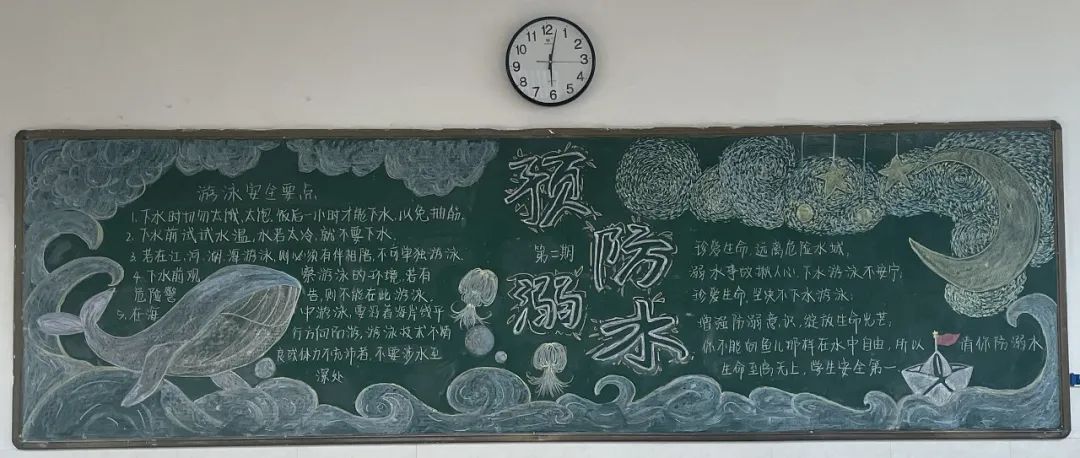 12
1
2
3
4
5
6
7
8
9
10
11
预防溺水
第二期
游泳安全要点
1.下水时切勿太饿、太饱。饭后一小时才能下水,以免抽筋。
2.下水前试试水温,水若太冷,就不要下水。
3.若在江、河、湖、海游泳,则必须有伴相陪,不可单独游泳。
4.下水前观察游泳的环境,若有
危险警告,则不能在此游泳。
5.在海中游泳,要沿着海岸线平
行方向而游,游泳技术不精
良或体力不充沛者,不要涉水至
深处
珍爱生命,远离危险水域,
溺水事故揪人心,下水游泳不安宁;
珍爱生命,坚决不下水游泳;
增强防溺意识,绽放生命光芒;
你不能向鱼儿那样在水中自由,所以请你防溺水
生命至高无上,学生安全第一